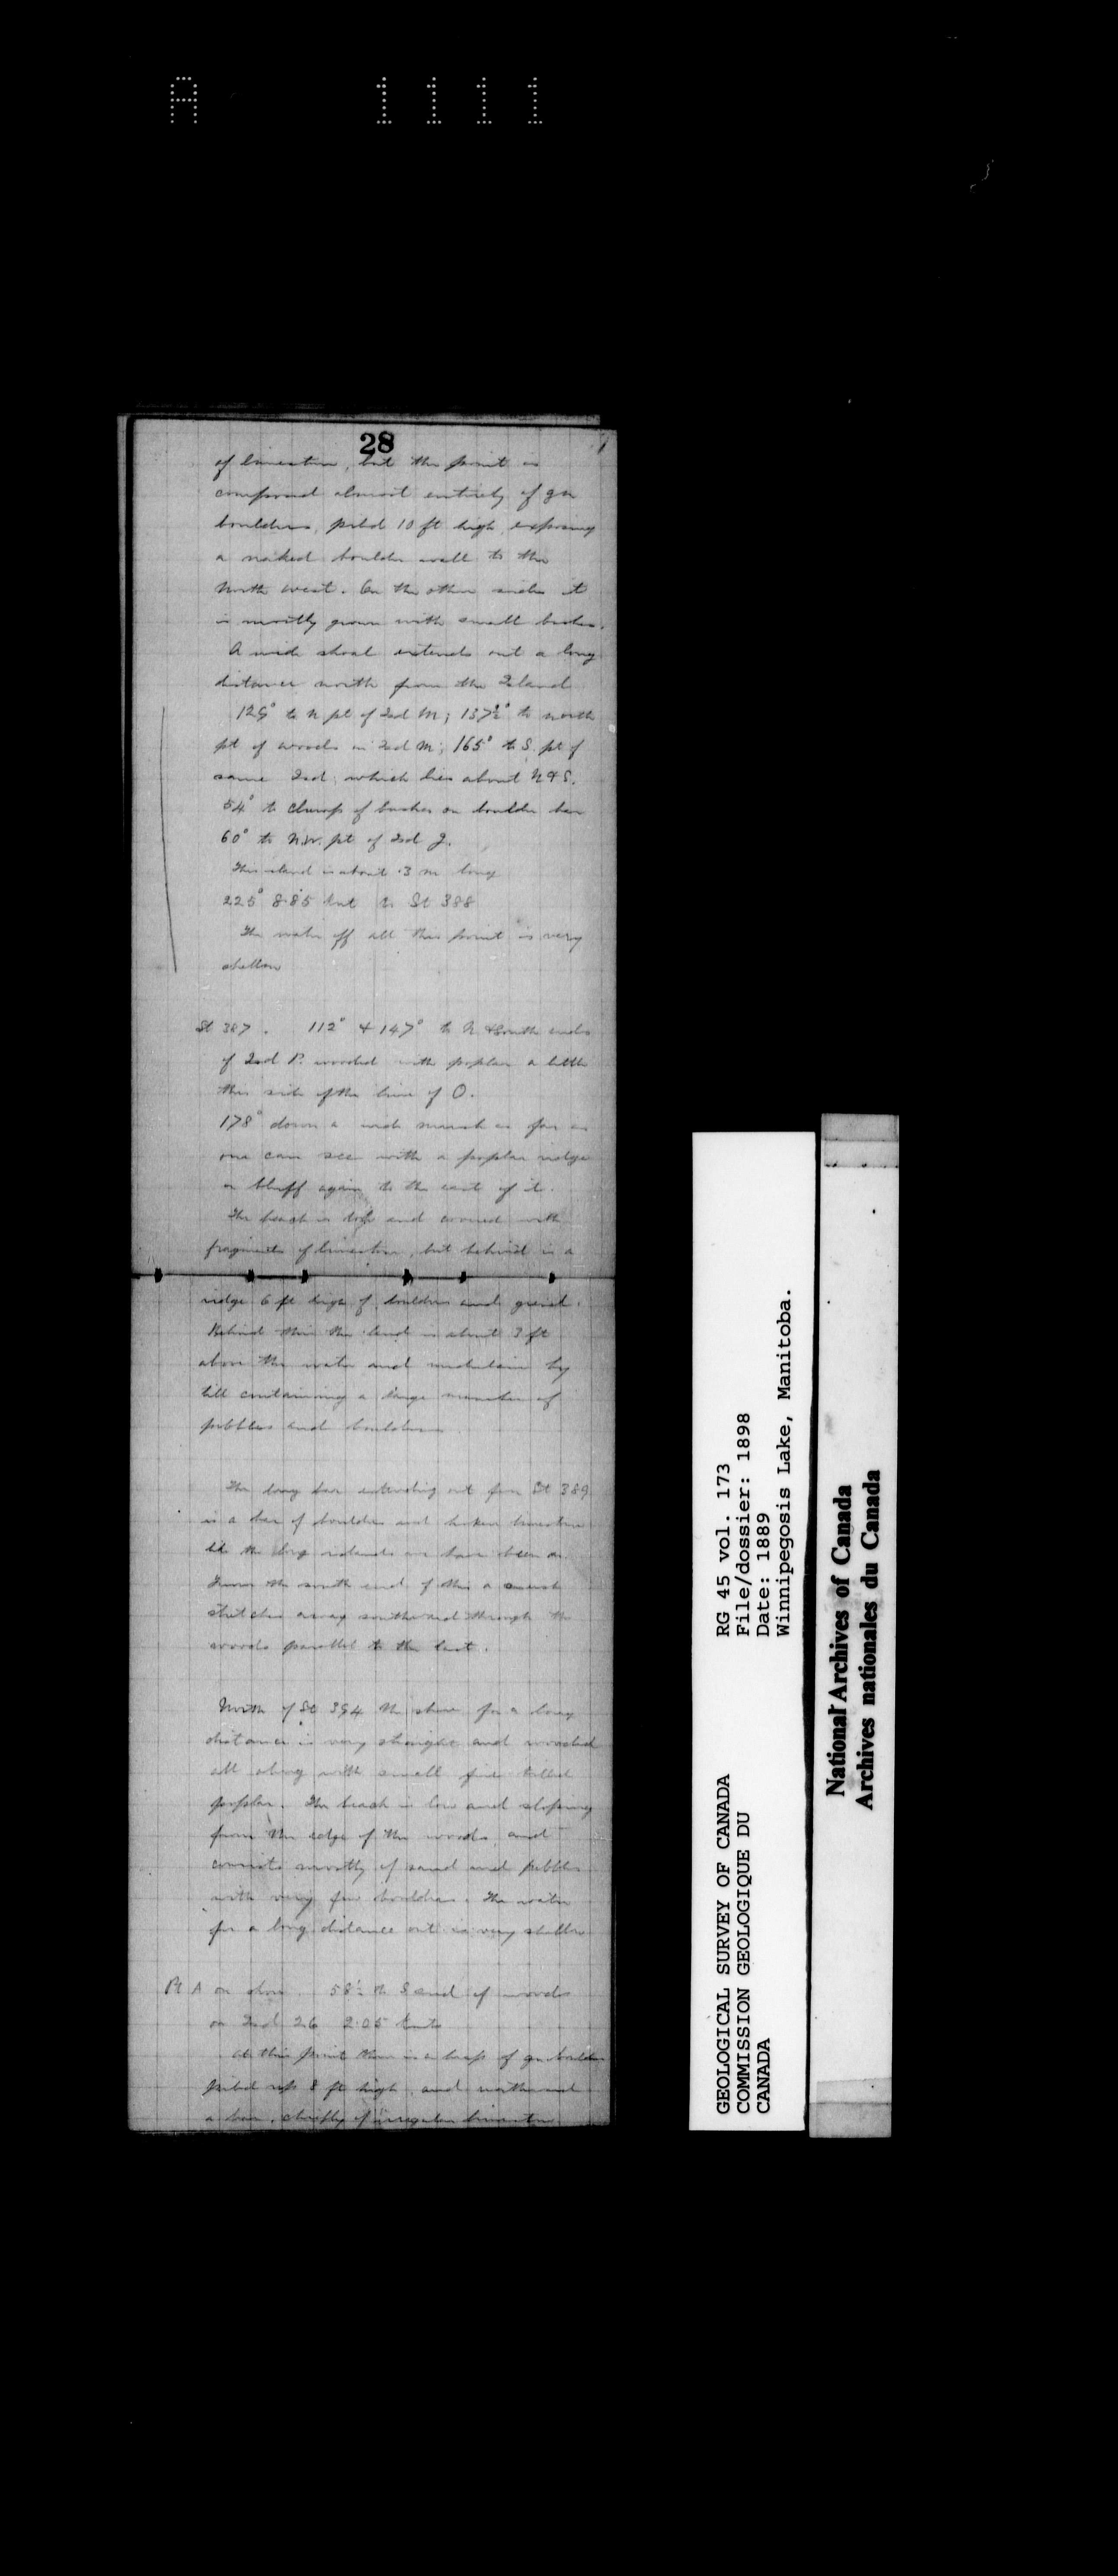 A 1111
28
of limestone, but the point is
composed almost entirely of gn
boulders, piled 10 ft high, exposing
a naked boulder wall to the
North west. On the other sides it
is mostly grown with small bushes.
A wide shoal extends out a long
distance north from the Island
125° to N pt of Isd M; 137½° to north
pt of woods in Isd M; 165° to S. pt of
same Isd, which lies about N & S.
54° to clump of bushes on boulder bar
60° to N.W. pt of Isd J.
This island is about .3 m long
225° 8.85 knt to St 388
The water off all this point is very
shallow
St 387. 112° & 147° to N & South ends
of Isd P. wooded with poplar a little
this side of the line of O.
178° down a wide marsh as far as
one can see with a poplar ridge
or bluff again to the east of it.
The beach is low and covered with
fragments of limestone, but behind is a
ridge 6 ft high of boulders and gravel.
Behind this the land is about 3 ft
above the water and underlain by
till containing a large number of
pebbles and boulders
The long bar extending out from St 389
is a bar of boulders and broken limestone
like the big islands we have been on
From the south end of this a marsh
stretches away southward through the
woods parallel to the last.
North of St 394 the shore for a long
distance is very straight and wooded
all along with small fire killed
poplar. The beach is low and sloping
from the edge of the woods, and
consists mostly of sand and pebbles
with very few boulders. The water
for a long distance out is very shallow
Pt A on shore. 58½ to S end of woods
on Isd 26 2.05 knts
At this point there is a heap of gn boulders
piled up 8 ft high, and northward
a bar, chiefly of irregular limestone
GEOLOGICAL SURVEY OF CANADA
COMMISSION GEOLOGIQUE DU
CANADA
RG 45 vol. 173
File/dossier: 1898
Date: 1889
Winnipegosis Lake, Manitoba.
National Archives of Canada
Archives nationales du Canada